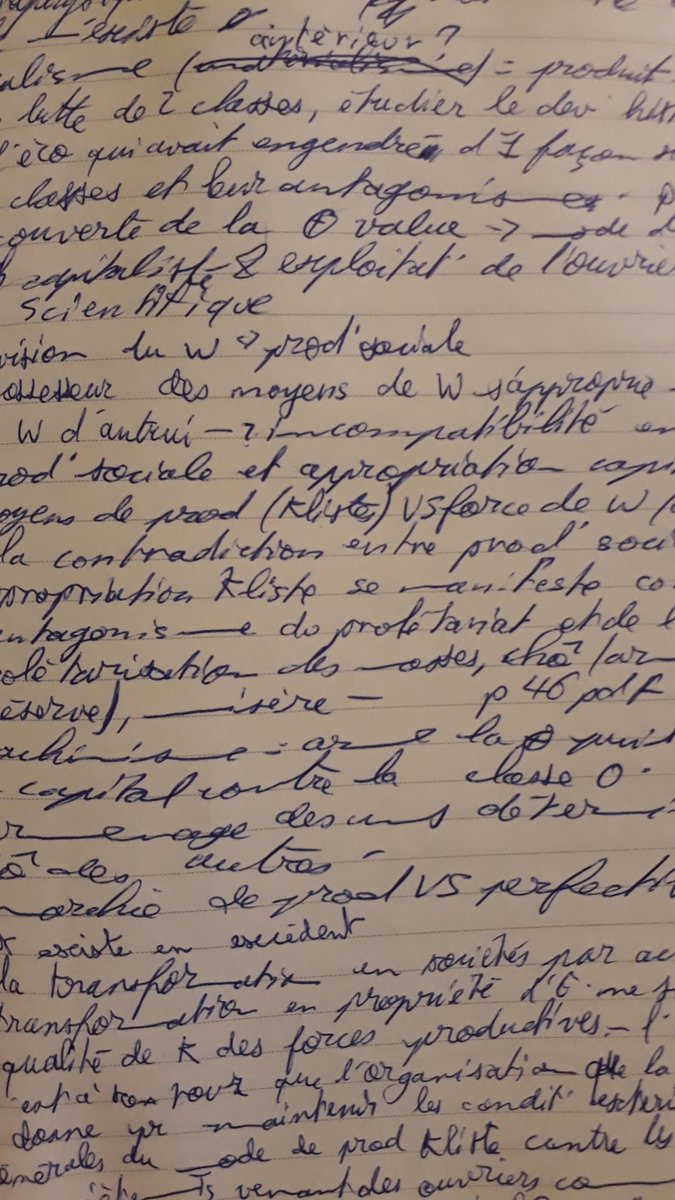 l'existe
antérieur?
alisme = produit
lutte de 2 classes, étudier le dev hist
l'éco qui avait engendré d'1 façon
classes et leur antagonisme. p
couverte de la ⊕ value → mode d
capitaliste & exploitat° de l'ouvrier
scientifique
vision du W → prod° sociale
ossesseur des moyens de W s'approprie
W d'autrui → incompatibilité en
rod° sociale et appropriation capi
oyens de prod (Kliste) VS force de W
la contradiction entre prod° soci
propriation Kliste se manifeste co
antagonisme du prolétariat et de l
olétarisation des masses, chô (ar
éserve), misère — p 46 pdf
achinisme = arme la ⊕ puis
capital contre la classe O.
urmenage des uns détermi
ô des autres
narchie de prod VS perfecti
existe en excédent
la transformation en sociétés par ac
transformation en propriété d'E. ne s
qualité de K des forces productives. — l'
est à son tour que l'organisation que la
donne pr maintenir les condit° extéri
énérales du mode de prod Kliste contre les
venant des ouvriers co